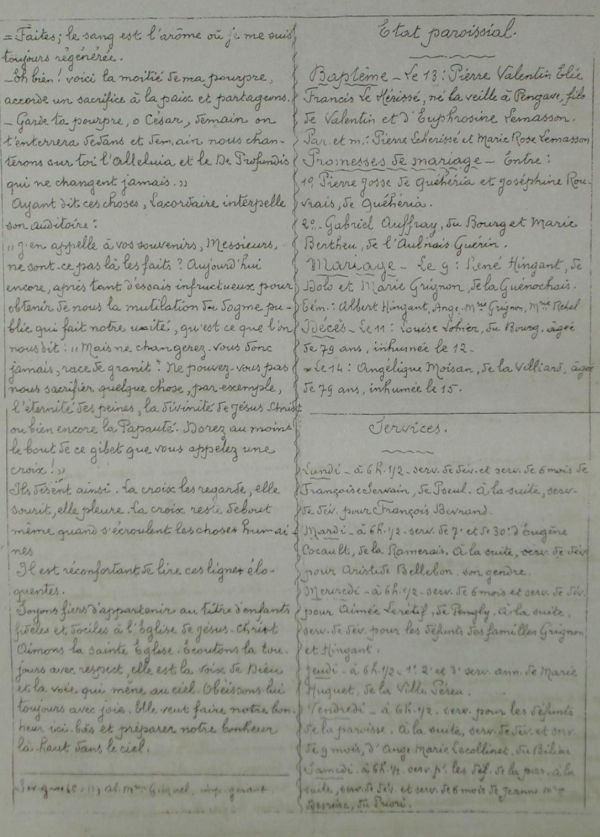 = Faites; le sang est l'arôme où je me suis
toujours régénérée.
- Eh bien! voici la moitié de ma pourpre,
accorde un sacrifice à la paix et partageons.
- Garde ta pourpre, o César, demain on
t'enterrera dedans et demain nous chan-
terons sur toi l'Alleluia et le De Profundis
qui ne changent jamais.»
Ayant dit ces choses, Lacordaire interpelle
son auditoire:
"J'en appelle à vos souvenirs, Messieurs,
ne sont-ce pas là les faits? Aujourd'hui
encore, après tant d'essais infructueux pour
obtenir de nous la mutilation du dogme pu-
blié qui fait notre unité, qu'est ce que l'on
nous dit: "Mais ne changerez-vous donc
jamais, race de granit? Ne pouvez-vous pas
nous sacrifier quelque chose, par exemple,
l'éternité des peines, la divinité de Jésus Christ
ou bien encore la Papauté. Dorez au moins
le bout de ce gibet que vous appelez une
croix!»
Ils disent ainsi. La croix les regarde, elle
sourit, elle pleure. La croix reste debout
même quand s'écroulent les choses humai-
nes
Il est réconfortant de lire ces lignes élo-
quentes.
Soyons fiers d'appartenir au titre d'enfants
fidèles et dociles à l'Eglise de Jésus-Christ
Aimons la sainte Eglise. Ecoutons la tou-
jours avec respect, elle est la voix de Dieu
et la voie qui mène au ciel. Obéissons lui
toujours avec joie. Elle veut faire notre bon-
heur ici-bas et préparer notre bonheur
là-haut dans le ciel.
gérant
Etat paroissial.
Baptême - Le 13: Pierre Valentin Elie
Francis Le Hérissé, né la veille à Pengave, fils
de Valentin et d'Euphrosine Lemasson.
Par. et m.: Pierre Leherissé et Marie Rose Lemasson
Promesses de mariage - Entre:
1º. Pierre Josse de Quéhéria et Joséphine Rou-
vrais, de Quéhéria.
2º. Gabriel Auffray, du Bourg et Marie
Bertheu, de l'Aulnais Guérin.
Mariage - Le 9: René Hingant, de
Dolo et Marie Grignon, de la Guénochais.
Tém: Albert Hingant, Ange, Mme Grignon, Mme Rehel
Décès - Le 11: Louise Lohier, du Bourg, âgée
de 79 ans, inhumée le 12.
Le 14: Angélique Moisan, de la Villiard, âgée
de 79 ans, inhumée le 15.
Services.
Lundi - à 6h.1/2 - serv. de dév. et serv. de 6 mois de
Françoise Servain, de Pseul. à la suite, serv.
de dév. pour François Bevrand.
Mardi - à 6h.1/2 - serv. de 7e et de 30e d'Eugène
Cocault, de la Ramerais. à la suite, serv. de dév.
pour Aristide Bellebon. son gendre.
Mercredi - à 6h.1/2 - serv. de 6 mois et serv. de dév.
pour Aimée Lerétif, de Pengly. à la suite.
serv. de dév. pour les défunts des familles Grignon
et Hingant.
Jeudi - à 6h.1/2 - 1º. 2º et 3º serv. ann. de Marie
Huguet, de la Ville Péreu.
Vendredi - à 6h.1/2. serv. pour les défunts
de la paroisse. à la suite, serv. de dév. et serv.
de 9 mois, d'Ange Marie Lecollinet, du
Samedi. à 6h.1/2 serv. pr. les déf. de la par. à la
suite, serv. de dév. et serv. de 6 mois de Jeanne
du Prioré.